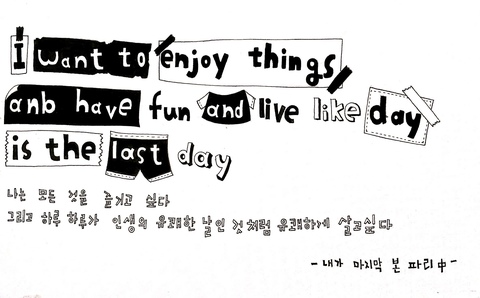 I want to enjoy things
anb have fun and live like day
is the last day
나는 모든 것을 즐기고 싶다
그리고 하루 하루가 인생의 유쾌한 날인 것처럼 유쾌하게 살고싶다
- 내가 마지막 본 파리 中 -